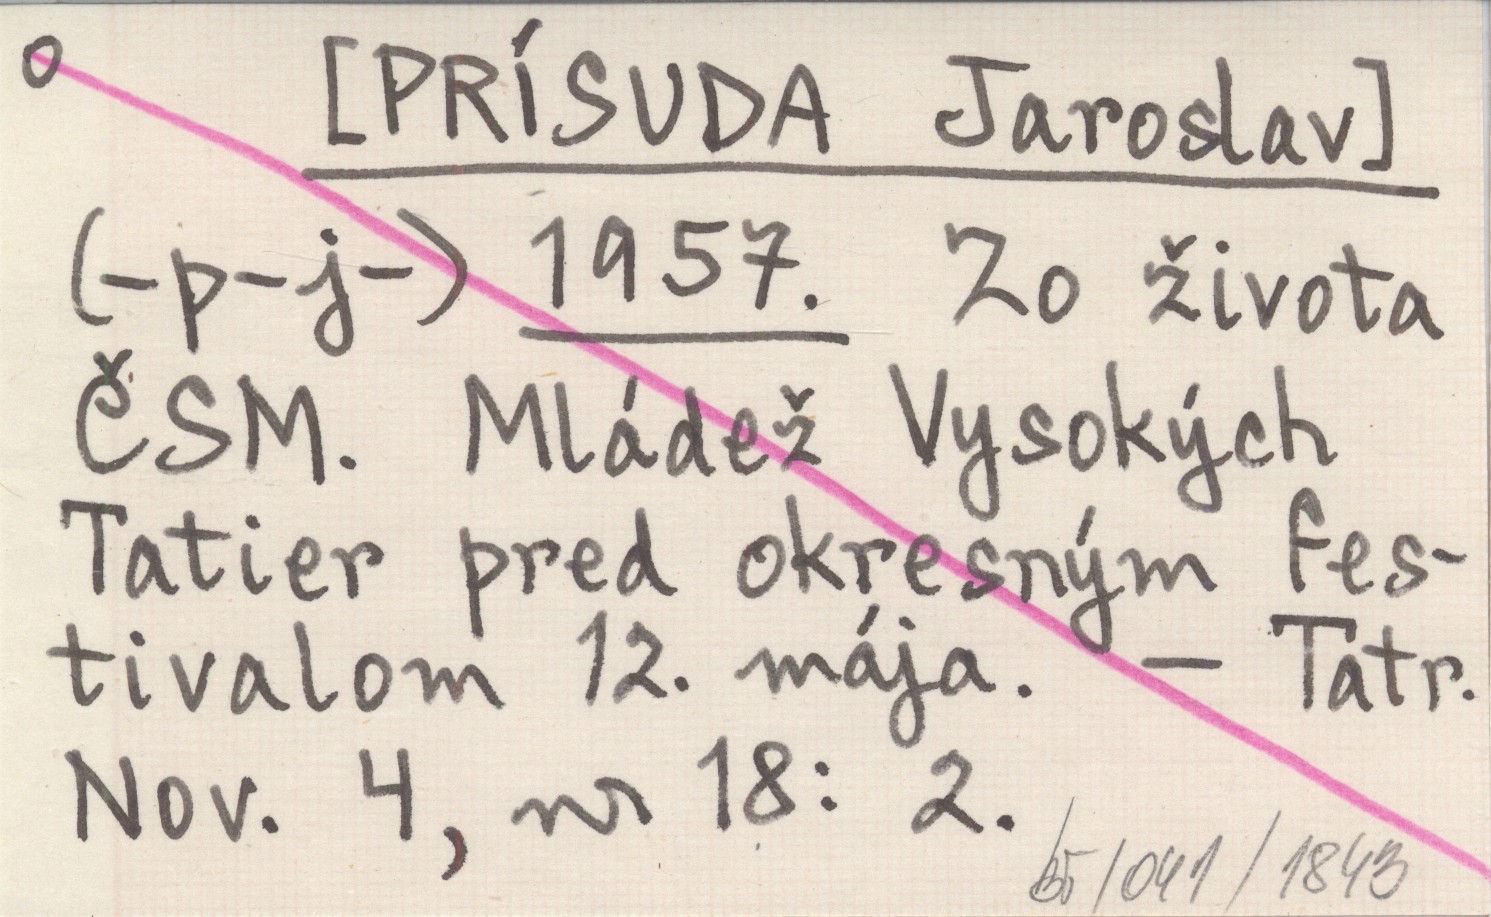 o [PRÍSUDA Jaroslav]
(-p-j-) 1957. Zo života
ČSM. Mládež Vysokých
Tatier pred okresným fes-
tivalom 12. mája. — Tatr.
Nov. 4, nr 18: 2.
/041/1843